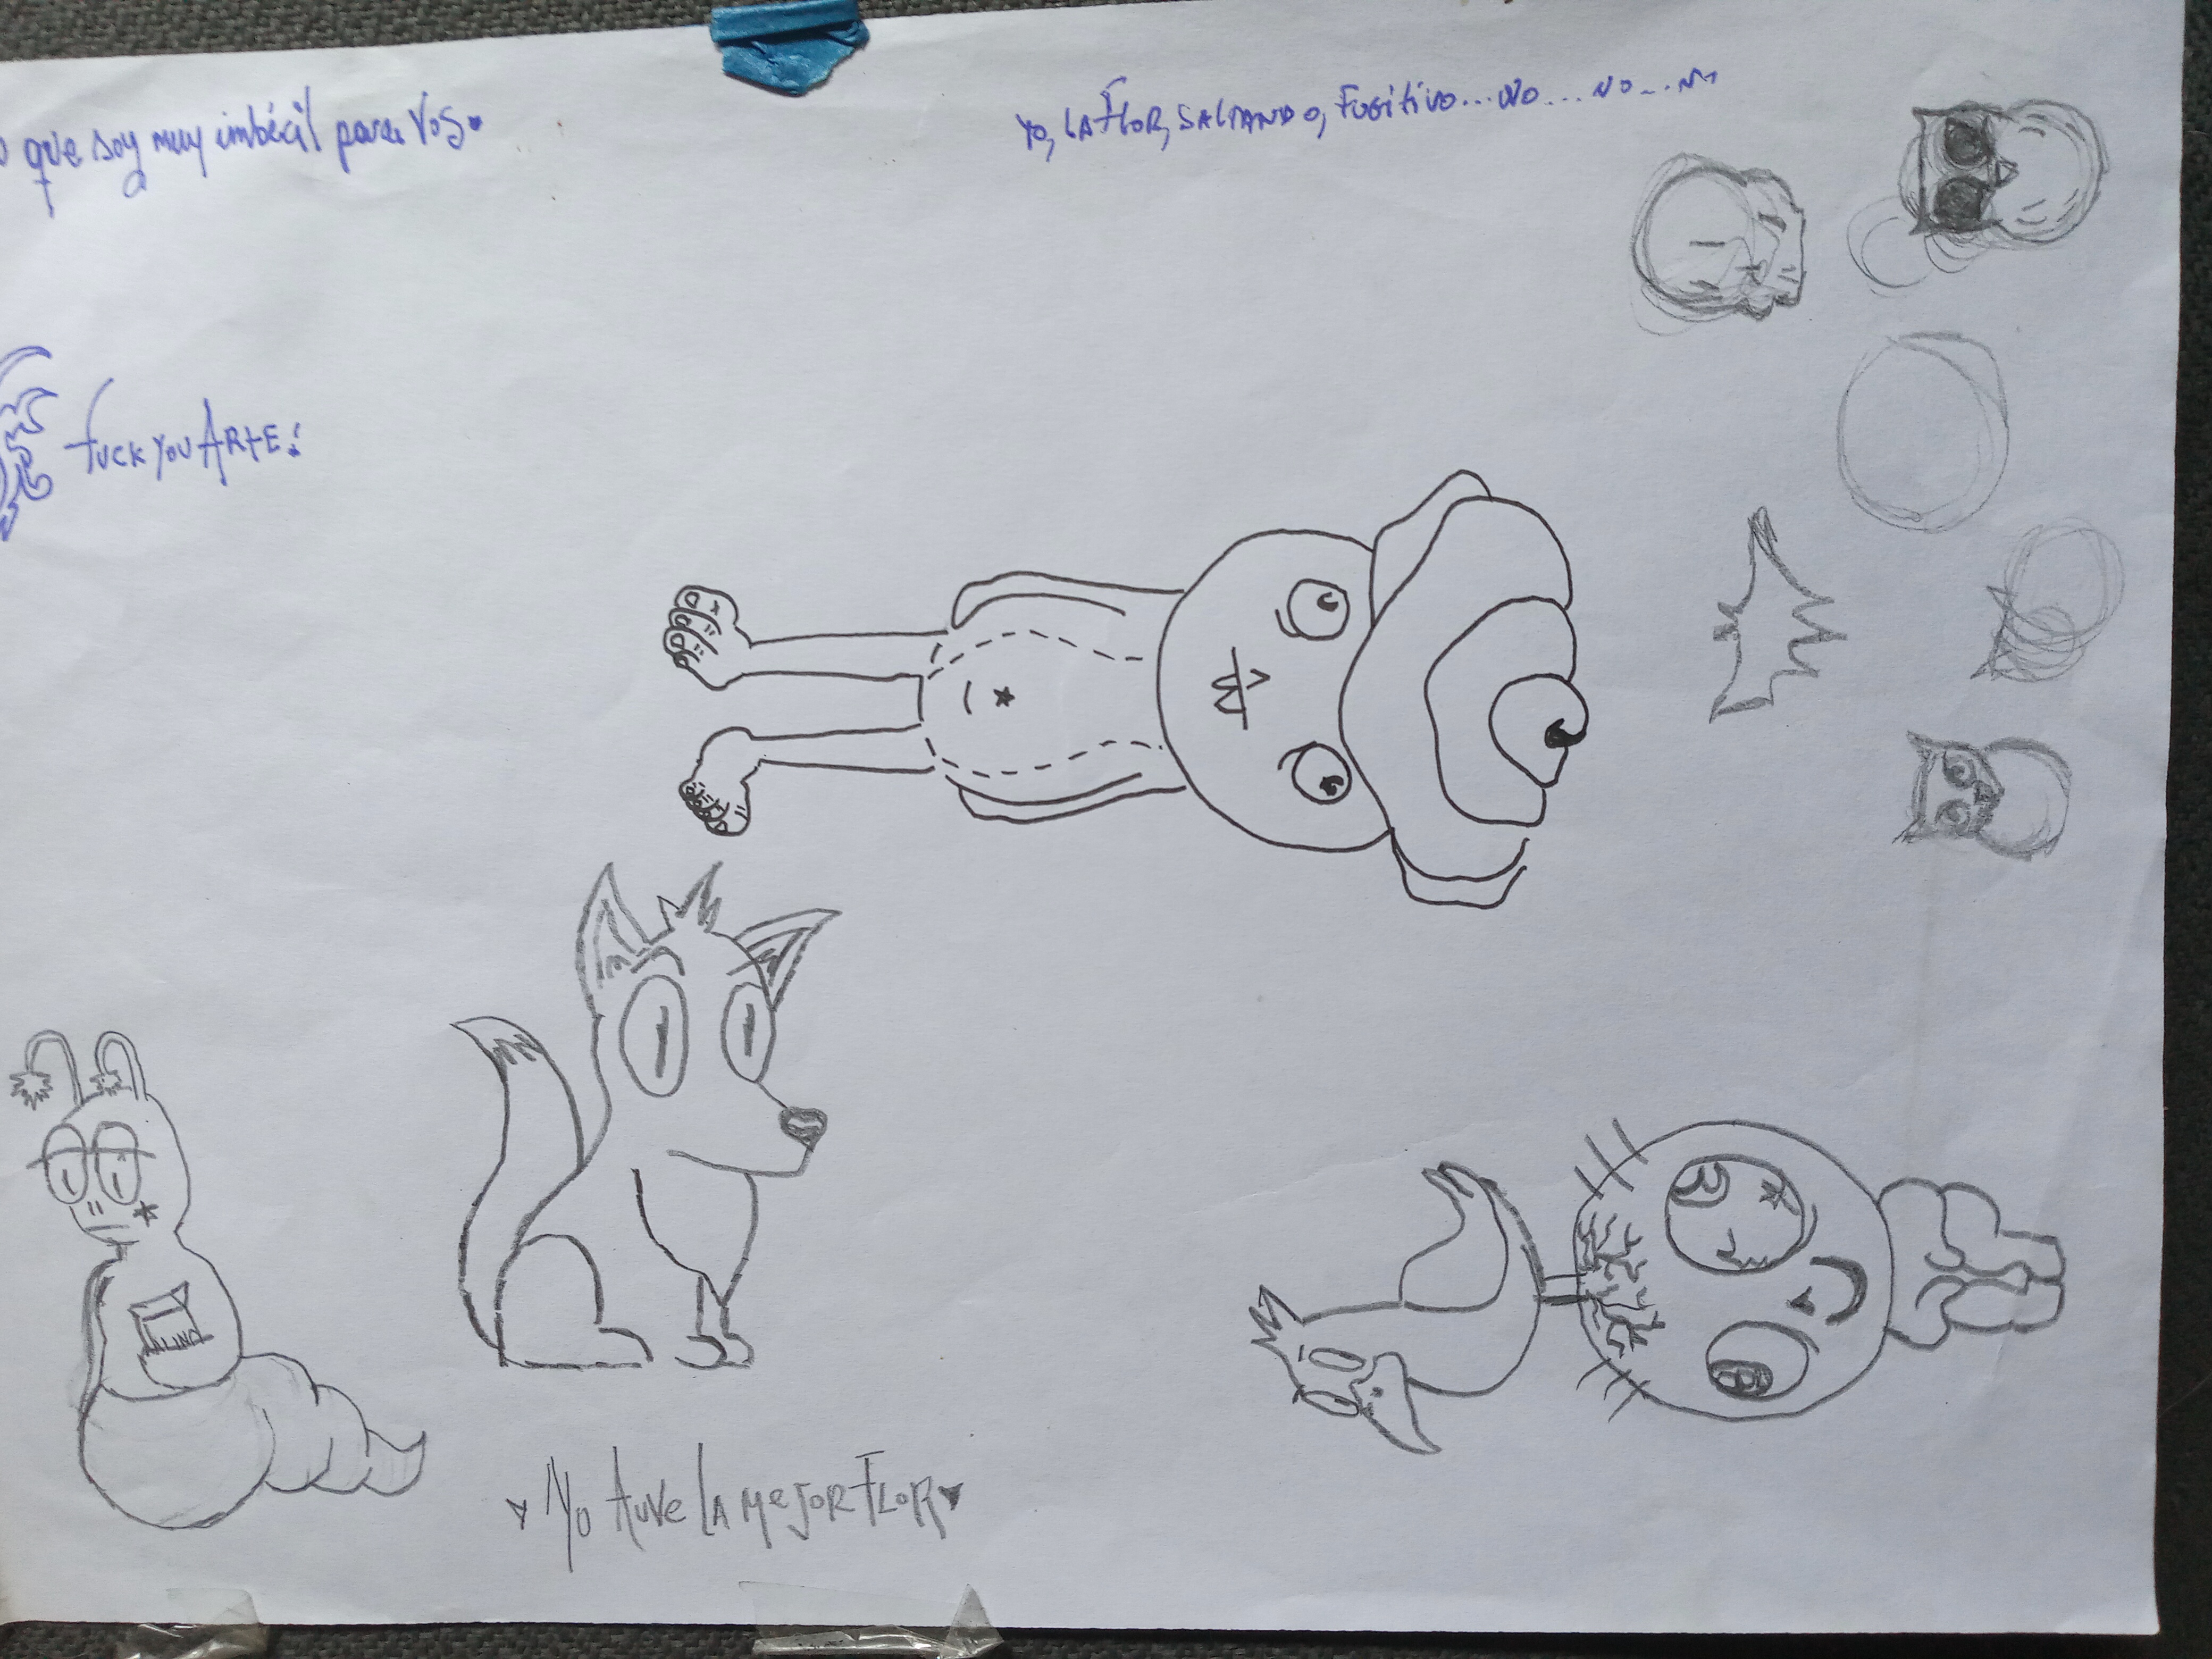 que soy muy imbécil para vos.
Yo, LA FLOR, SALTANDO, FUGITIVO... NO... NO... NO
FUCK YOU ARTE!
Yo tuve la mejor flor